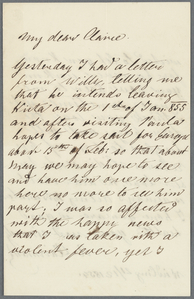 My dear Clarie
Yesterday I had a letter
from Wille, telling me
that he intends leaving
on the 1st of Jan 855
and after visiting
hopes to take sail for Europe
about 15th of Feb: so that about
May we may hope to see
and have him once more
here no more to see him
part, I was so affected
with the happy news
that I was taken with a
violent fever, yet I